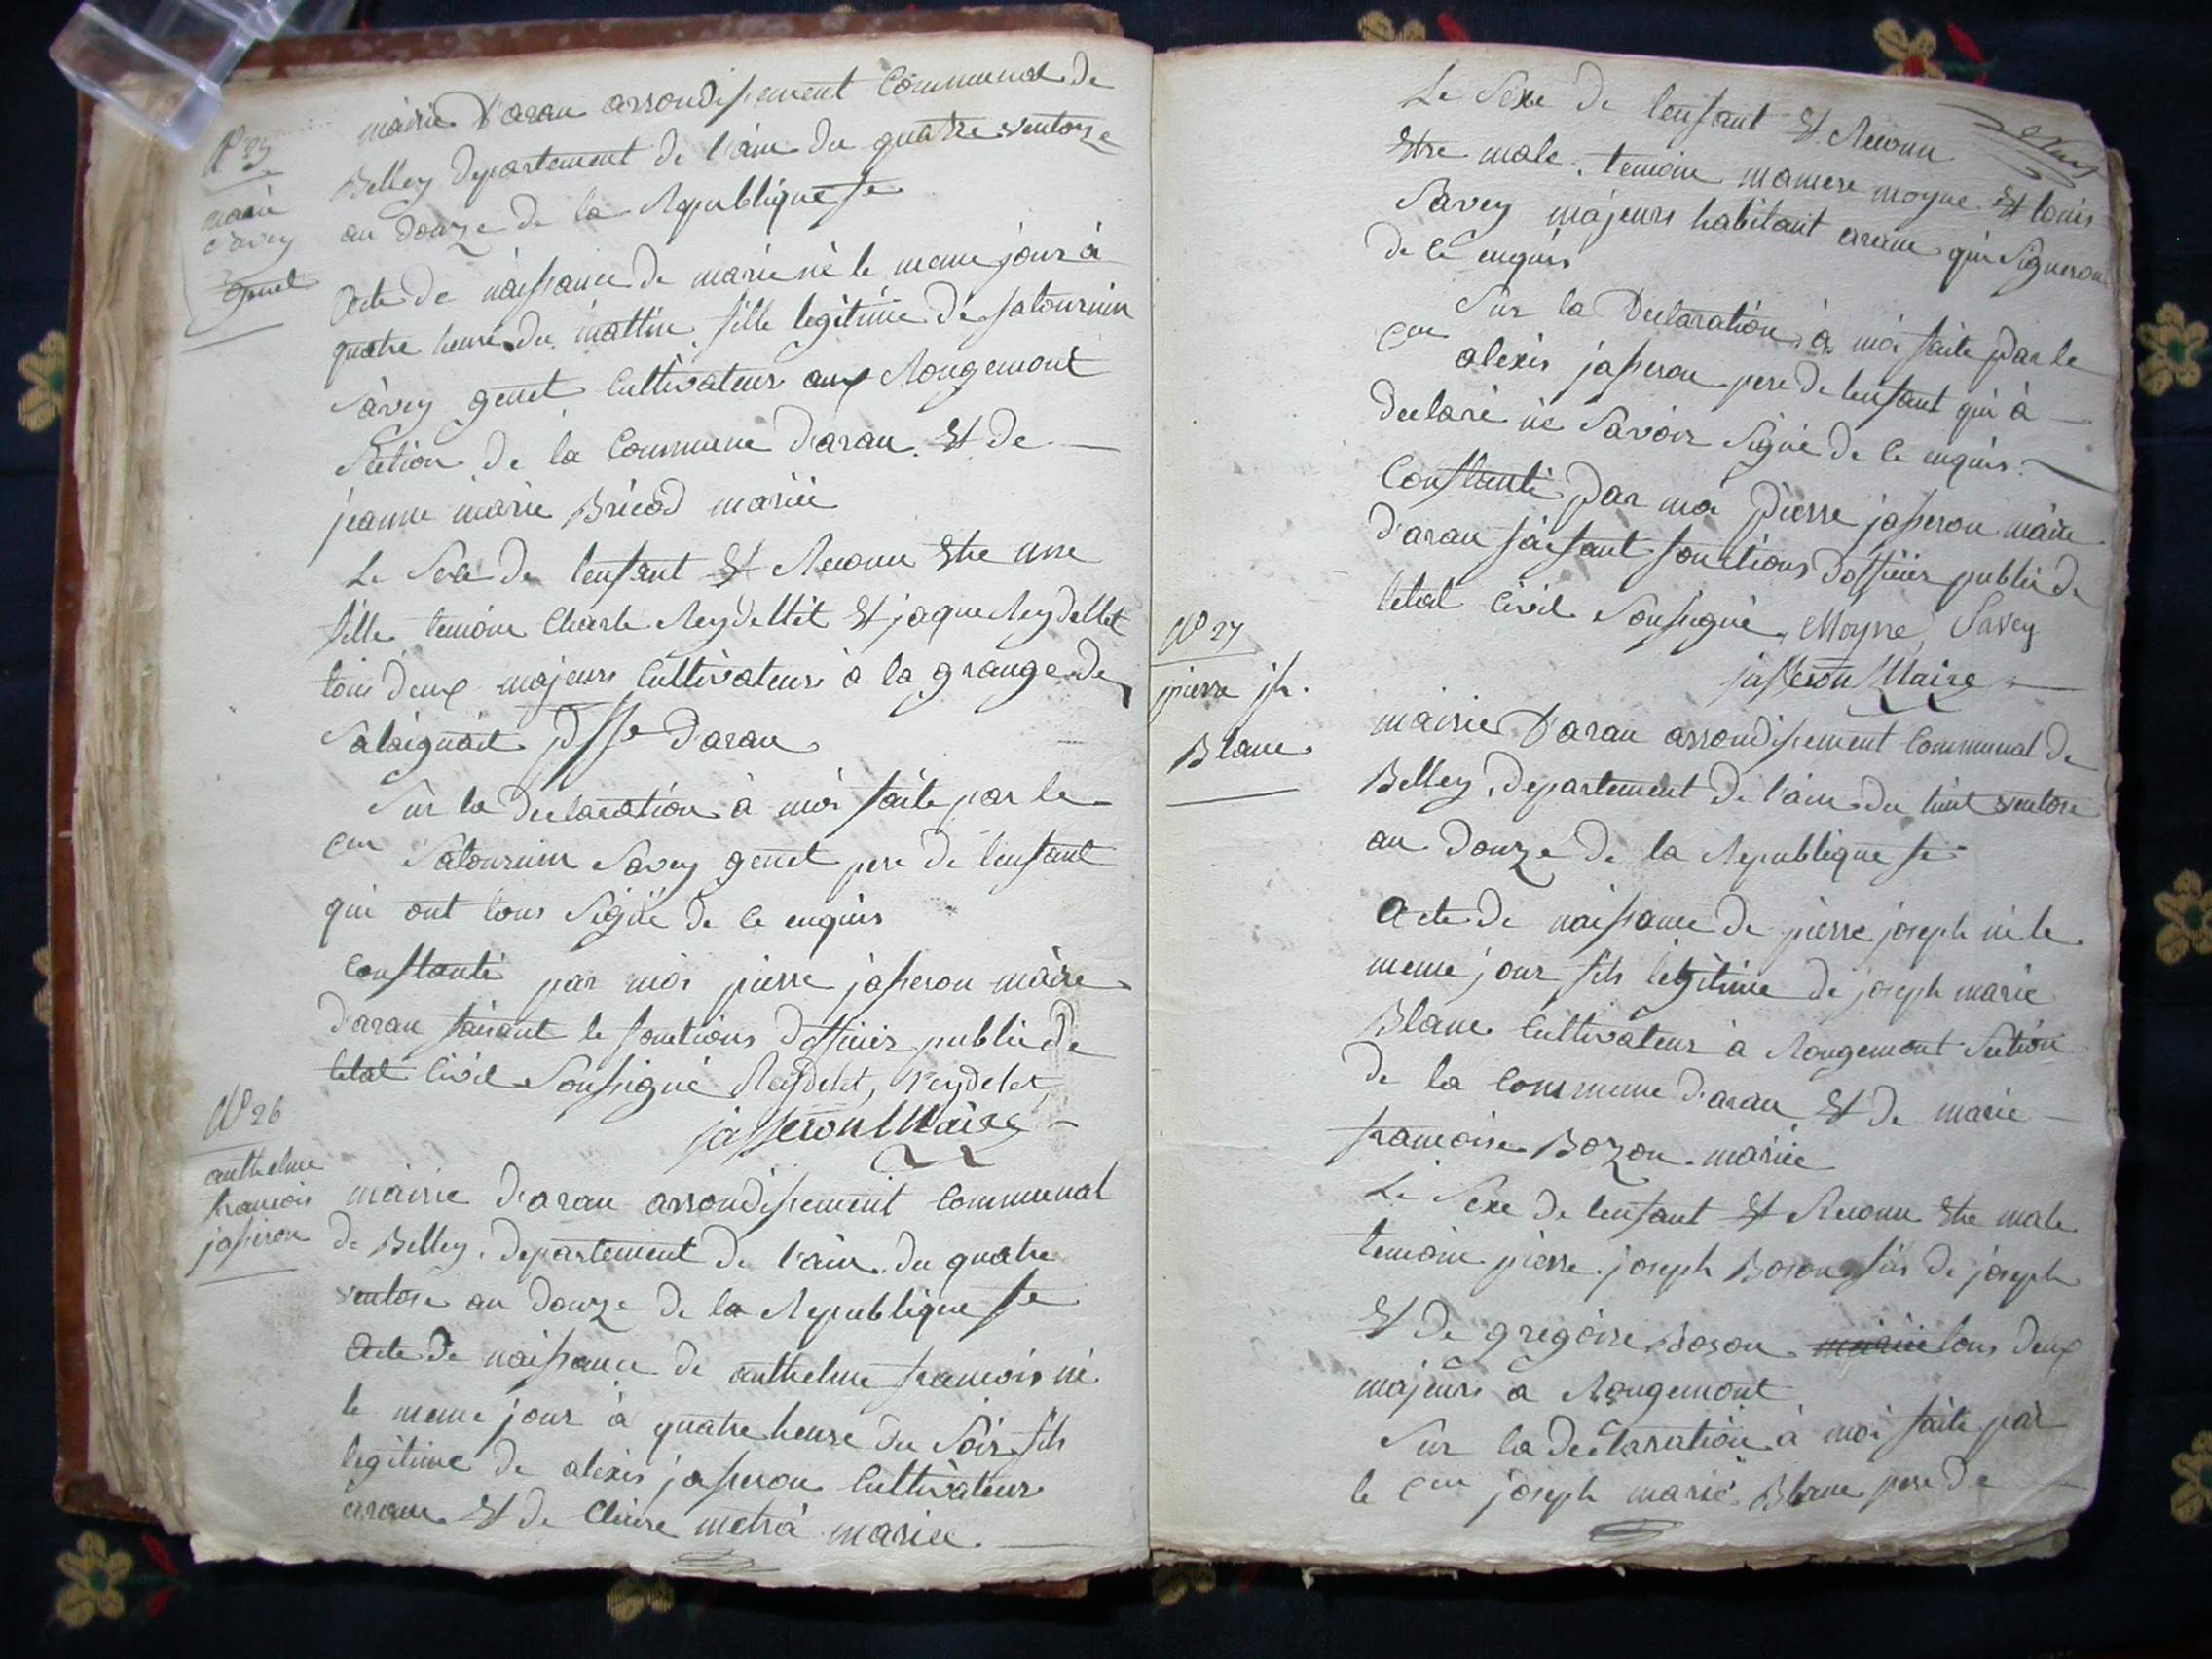 N° 25
marie
Savey
genet
mairie d'aran arrondissement Communal de
Belley departement de l'ain du quatre ventoze
an douze de la Republique fse
Acte de naissance de marie né le meme jour à
quatre heure du mattin fille legitime de satournin
Savey genet Cultivateur aux Rougemont
Section de la Commune d'aran Et de
jeanne marie Bricod mariée
Le Sexe de lenfant Et Reconu Etre une
fille temoin Charle Reydellet Et jaque Reydellet
tous deux majeurs Cultivateurs à la grange de
d'aran
Sur la declaration à moi faite par le
Cen Satournin Savey genet pere de lenfant
qui ont tous Signé de Ce enquis
Constanté par moi pierre jasseron maire
d'aran faisant le fonctions dofficier public de
letat Civil Soussigné Reydelet, Reydelet
jasseron Maire
N° 26
anthelme
francois
jasseron
mairie d'aran arrondissement Communal
de Belley departement de l'ain du quatre
ventose an douze de la Republique fse
Acte de naissance de anthelme francois né
le meme jour à quatre heure du Soir fils
legitime de alexis jasseron Cultivateur
arane Et de Claire metra mariée
Le Sexe de lenfant Et Reconu
Etre male. temoin mamere moyne Et louis
Savey majeurs habitant arane qui Signeron
de Ce enquis
Sur la Declaration à moi faite par le
Cen alexis jasseron pere de lenfant qui à
declaré ne Savoir Signé de Ce enquis
Constanté par moi pierre jasseron maire
d'aran faisant fonctions dofficier public de
letat Civil Soussigné, Moyne, Savey
jasseron Maire
N° 27
pierre jh.
Blanc
mairie d'aran arrondissement Communal de
Belley, departement de l'ain du huit ventose
an douze de la Republique fse
Acte de naissance de pierre joseph né le
meme jour fils legitime de joseph marie
Blanc Cultivateur à Rougemont Section
de la commune d'aran Et de marie
francoise Bozon mariée
Le Sexe de lenfant Et Reconu Etre male
temoin pierre joseph Boson fils de joseph
Et de gregoire Boson mariée tous deux
majeurs a Rougemont
Sur la declaration à moi faite par
le Cen joseph marie Blanc pere de